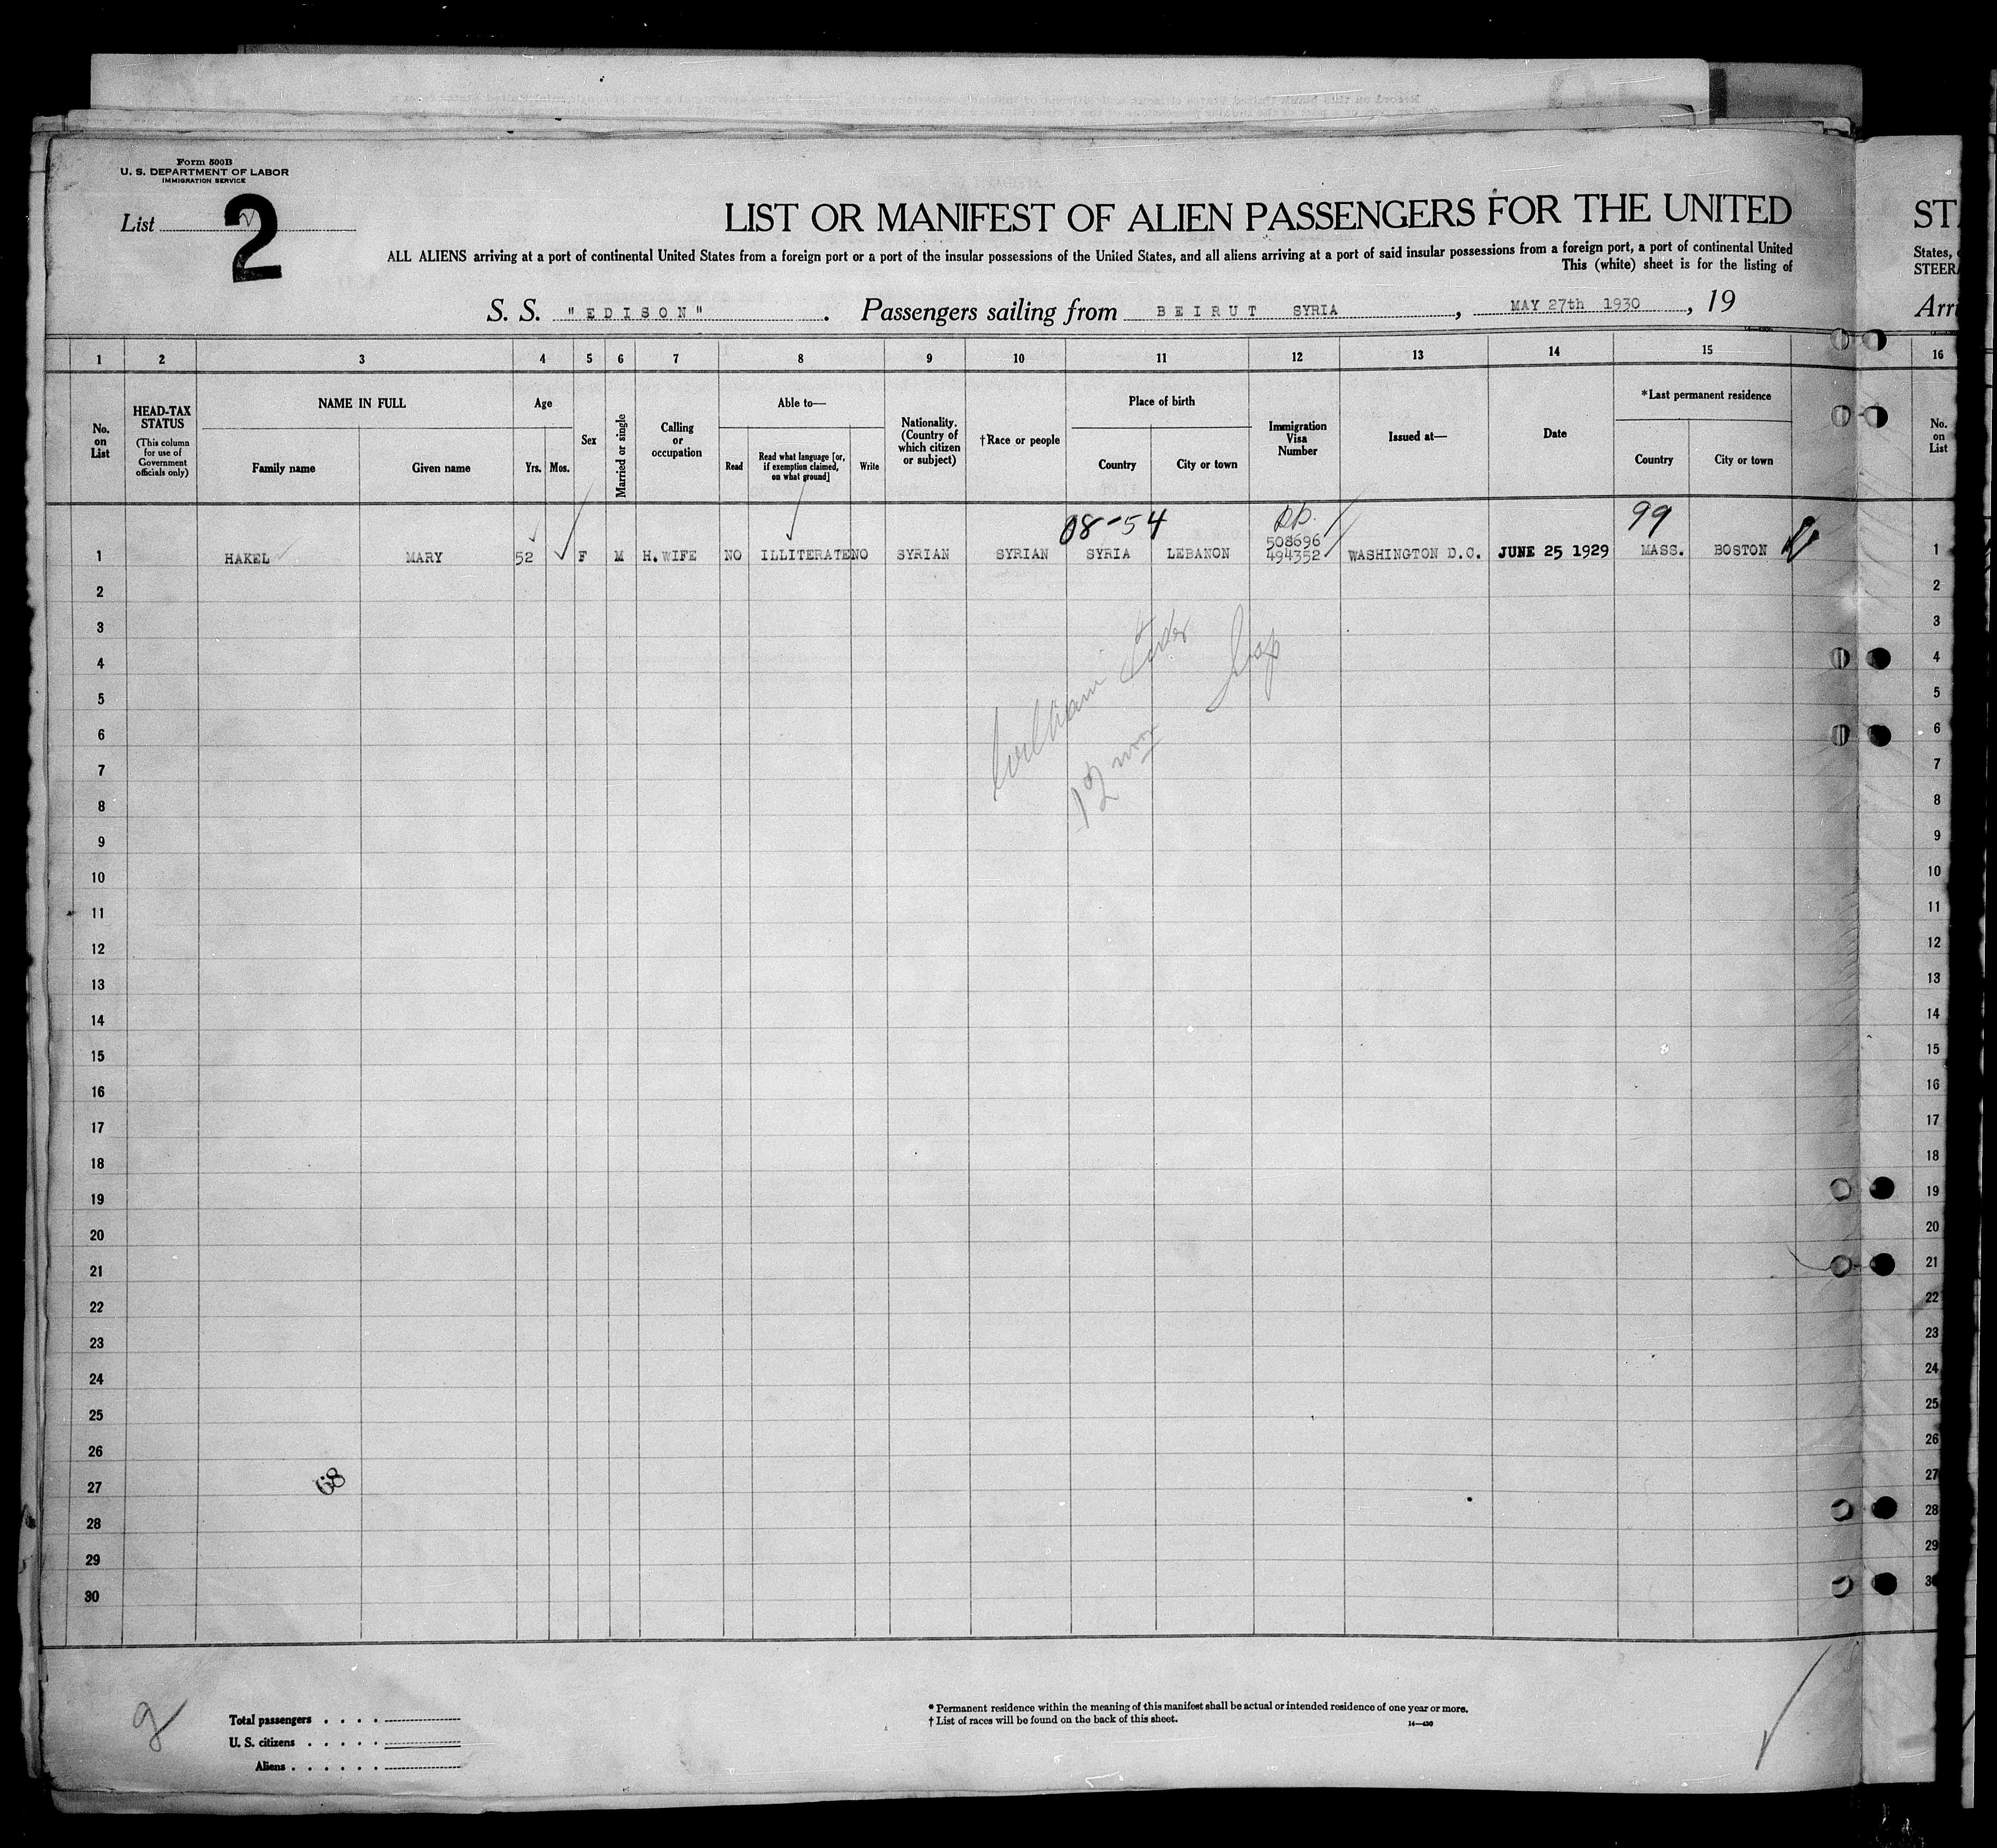 Form 500B
U. S. DEPARTMENT OF LABOR
IMMIGRATION SERVICE
List 2
LIST OR MANIFEST OF ALIEN PASSENGERS FOR THE UNITED
ALL ALIENS arriving at a port of continental United States from a foreign port or a port of the insular possessions of the United States, and all aliens arriving at a port of said insular possessions from a foreign port, a port of continental United
This (white) sheet is for the listing of
S. S. "EDISON". Passengers sailing from BEIRUT SYRIA, MAY 27th 1930, 19
ST
States,
STEER
Arri
1 2 3 4 5 6 7 8 9 10 11 12 13 14 15 16
No. on List
HEAD-TAX STATUS
(This column for use of Government officials only)
NAME IN FULL
Family name Given name
Age
Yrs. Mos.
Sex
Married or single
Calling or occupation
Able to—
Read
Read what language [or, if exemption claimed, on what ground]
Write
Nationality. (Country of which citizen or subject)
†Race or people
Place of birth
Country City or town
Immigration Visa Number
Issued at—
Date
*Last permanent residence
Country City or town
No. on List
08-54 99
508696
1 HAKEL MARY 52 F M H.WIFE NO ILLITERATE NO SYRIAN SYRIAN SYRIA LEBANON 494352 WASHINGTON D.C. JUNE 25 1929 MASS. BOSTON 1
2 2
3 3
4 4
5 5
6 6
7 7
8 8
9 9
10 10
11 11
12 12
13 13
14 14
15 15
16 16
17 17
18 18
19 19
20 20
21 21
22 22
23 23
24 24
25 25
26 26
27 27
28 28
29 29
30 30
William
12 mos
68
Total passengers . . . .
U. S. citizens . . . . .
Aliens . . . . . .
* Permanent residence within the meaning of this manifest shall be actual or intended residence of one year or more.
† List of races will be found on the back of this sheet. 14—430